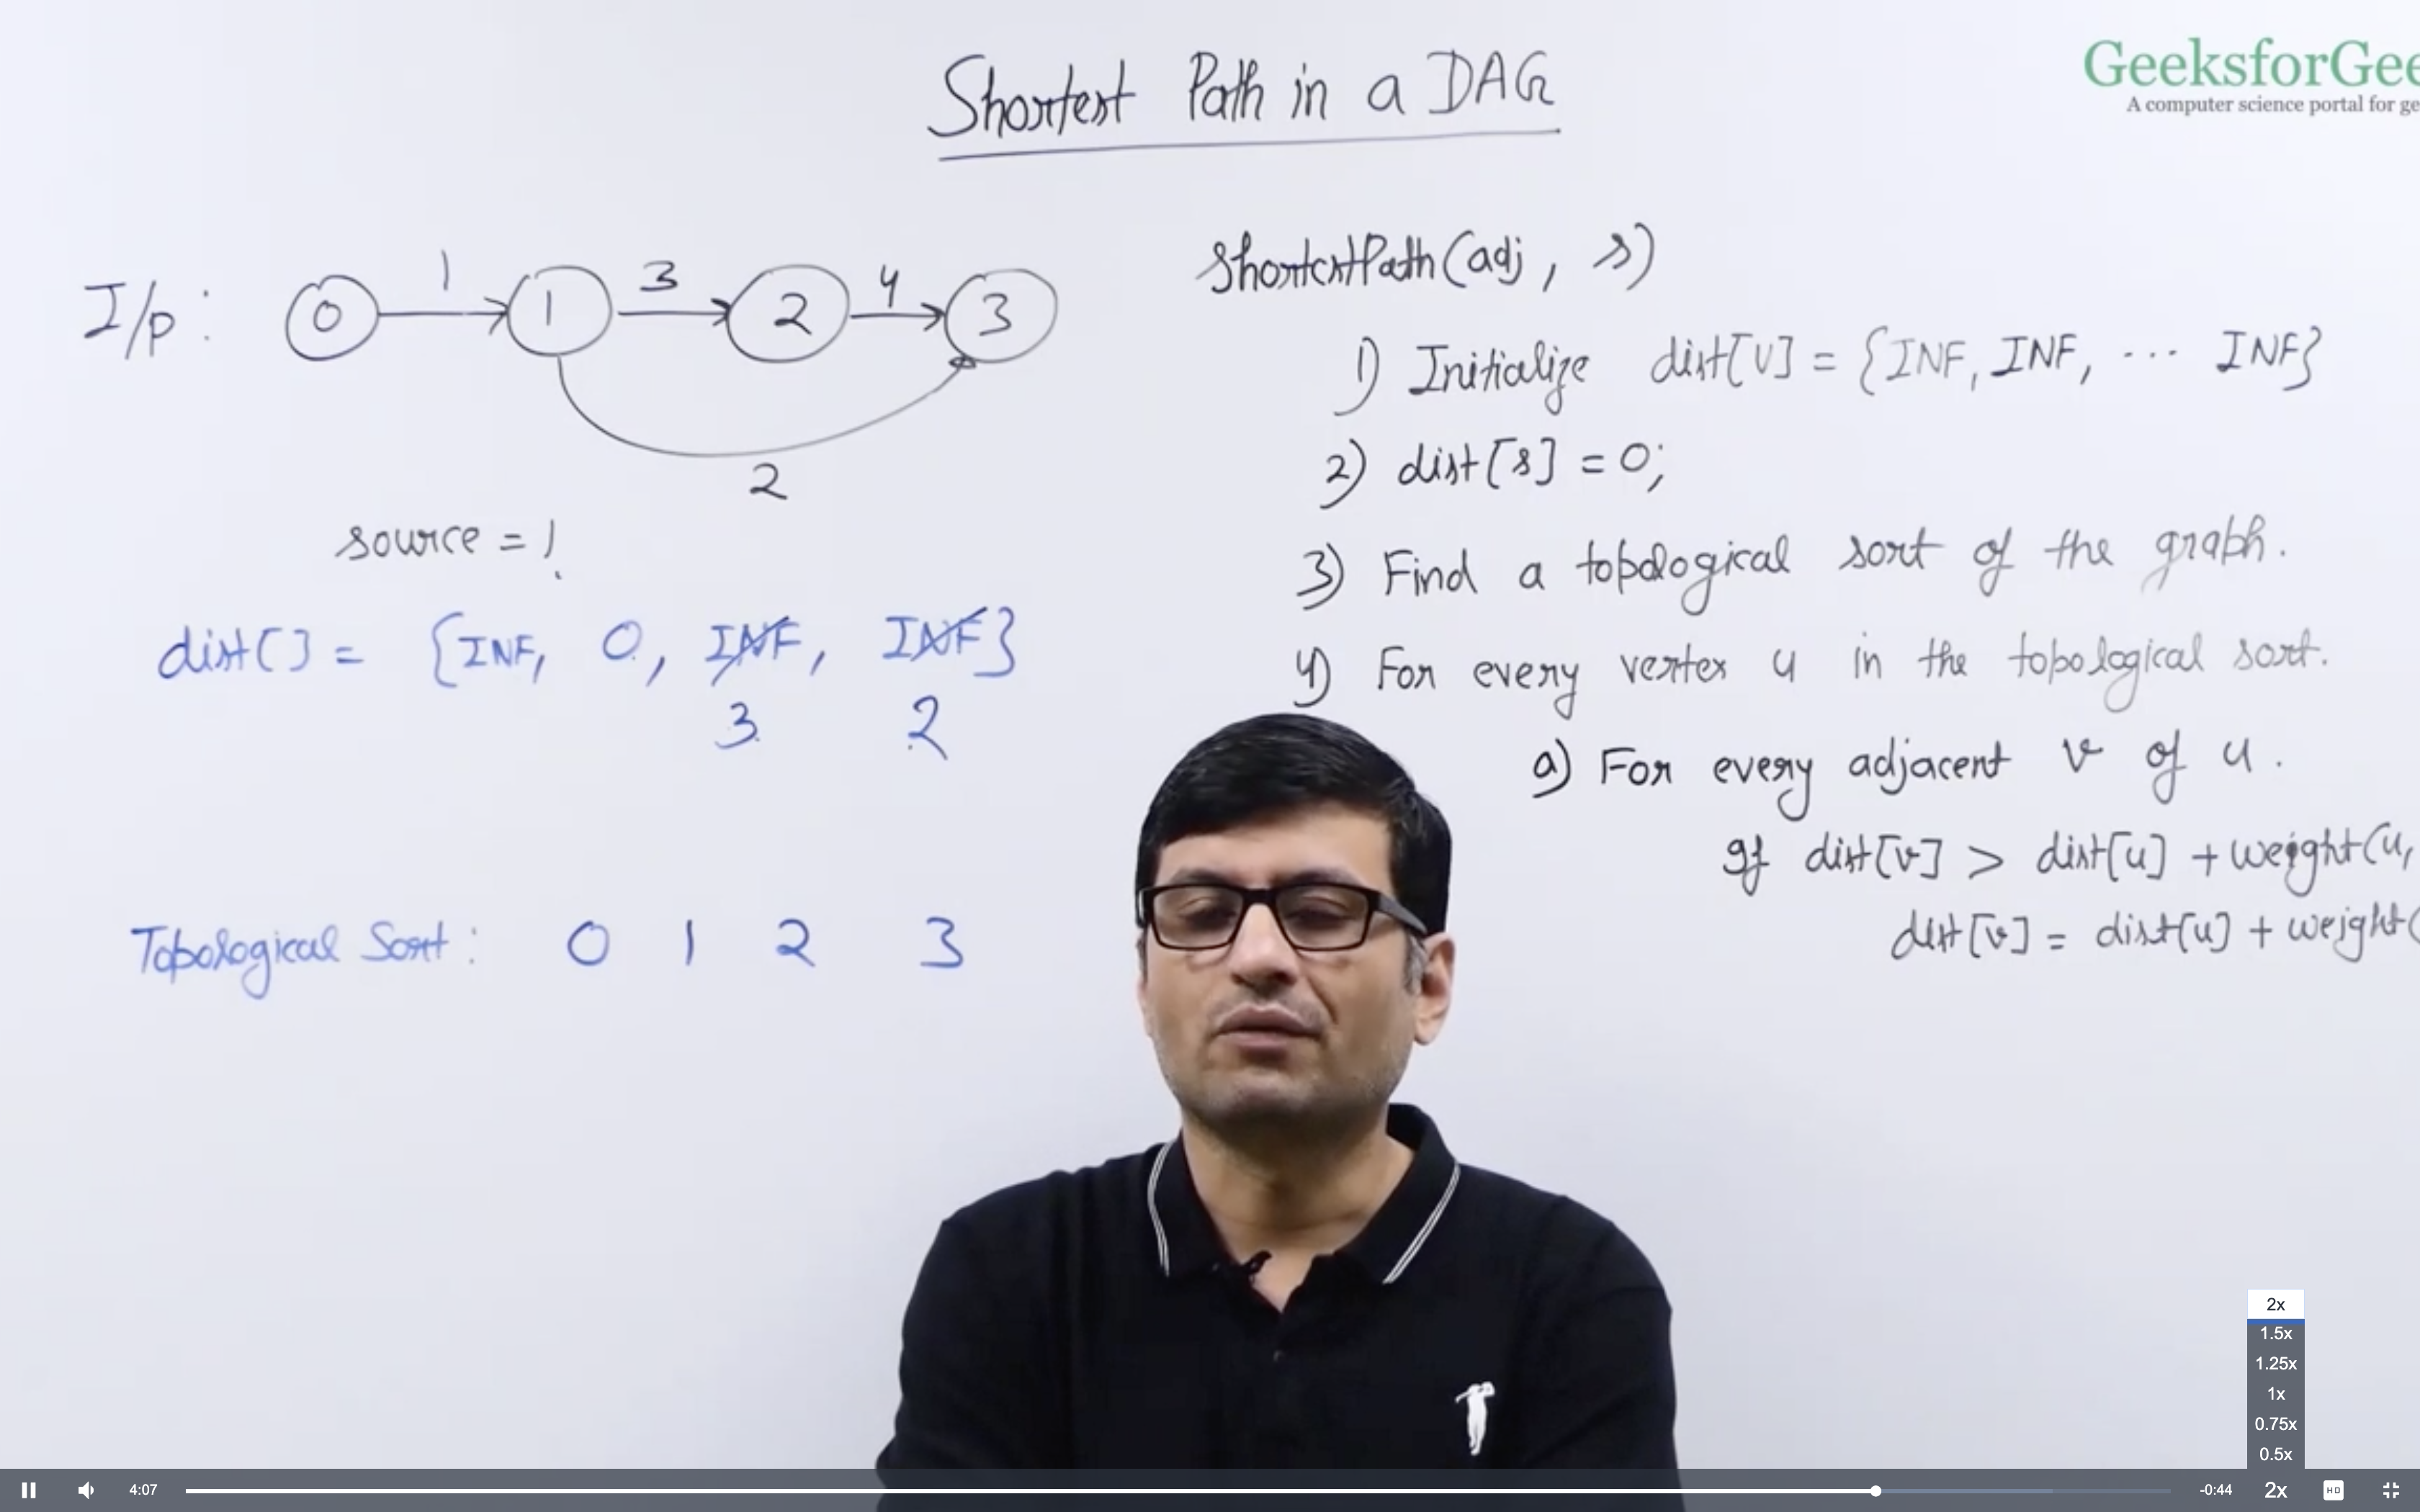 Shortest Path in a DAG
GeeksforGee
A computer science portal for ge
I/p : 0 1 1 3 2 4 3
2
source = 1
dist[] = {INF, 0, INF, INF}
3 2
Topological Sort : 0 1 2 3
ShortestPath(adj, s)
1) Initialize dist[V] = {INF, INF, ... INF}
2) dist[s] = 0;
3) Find a topological sort of the graph.
4) For every vertex u in the topological sort.
a) For every adjacent v of u.
If dist[v] > dist[u] + weight(u,
dist[v] = dist[u] + weight(
2x
1.5x
1.25x
1x
0.75x
0.5x
4:07 -0:44 2x HD